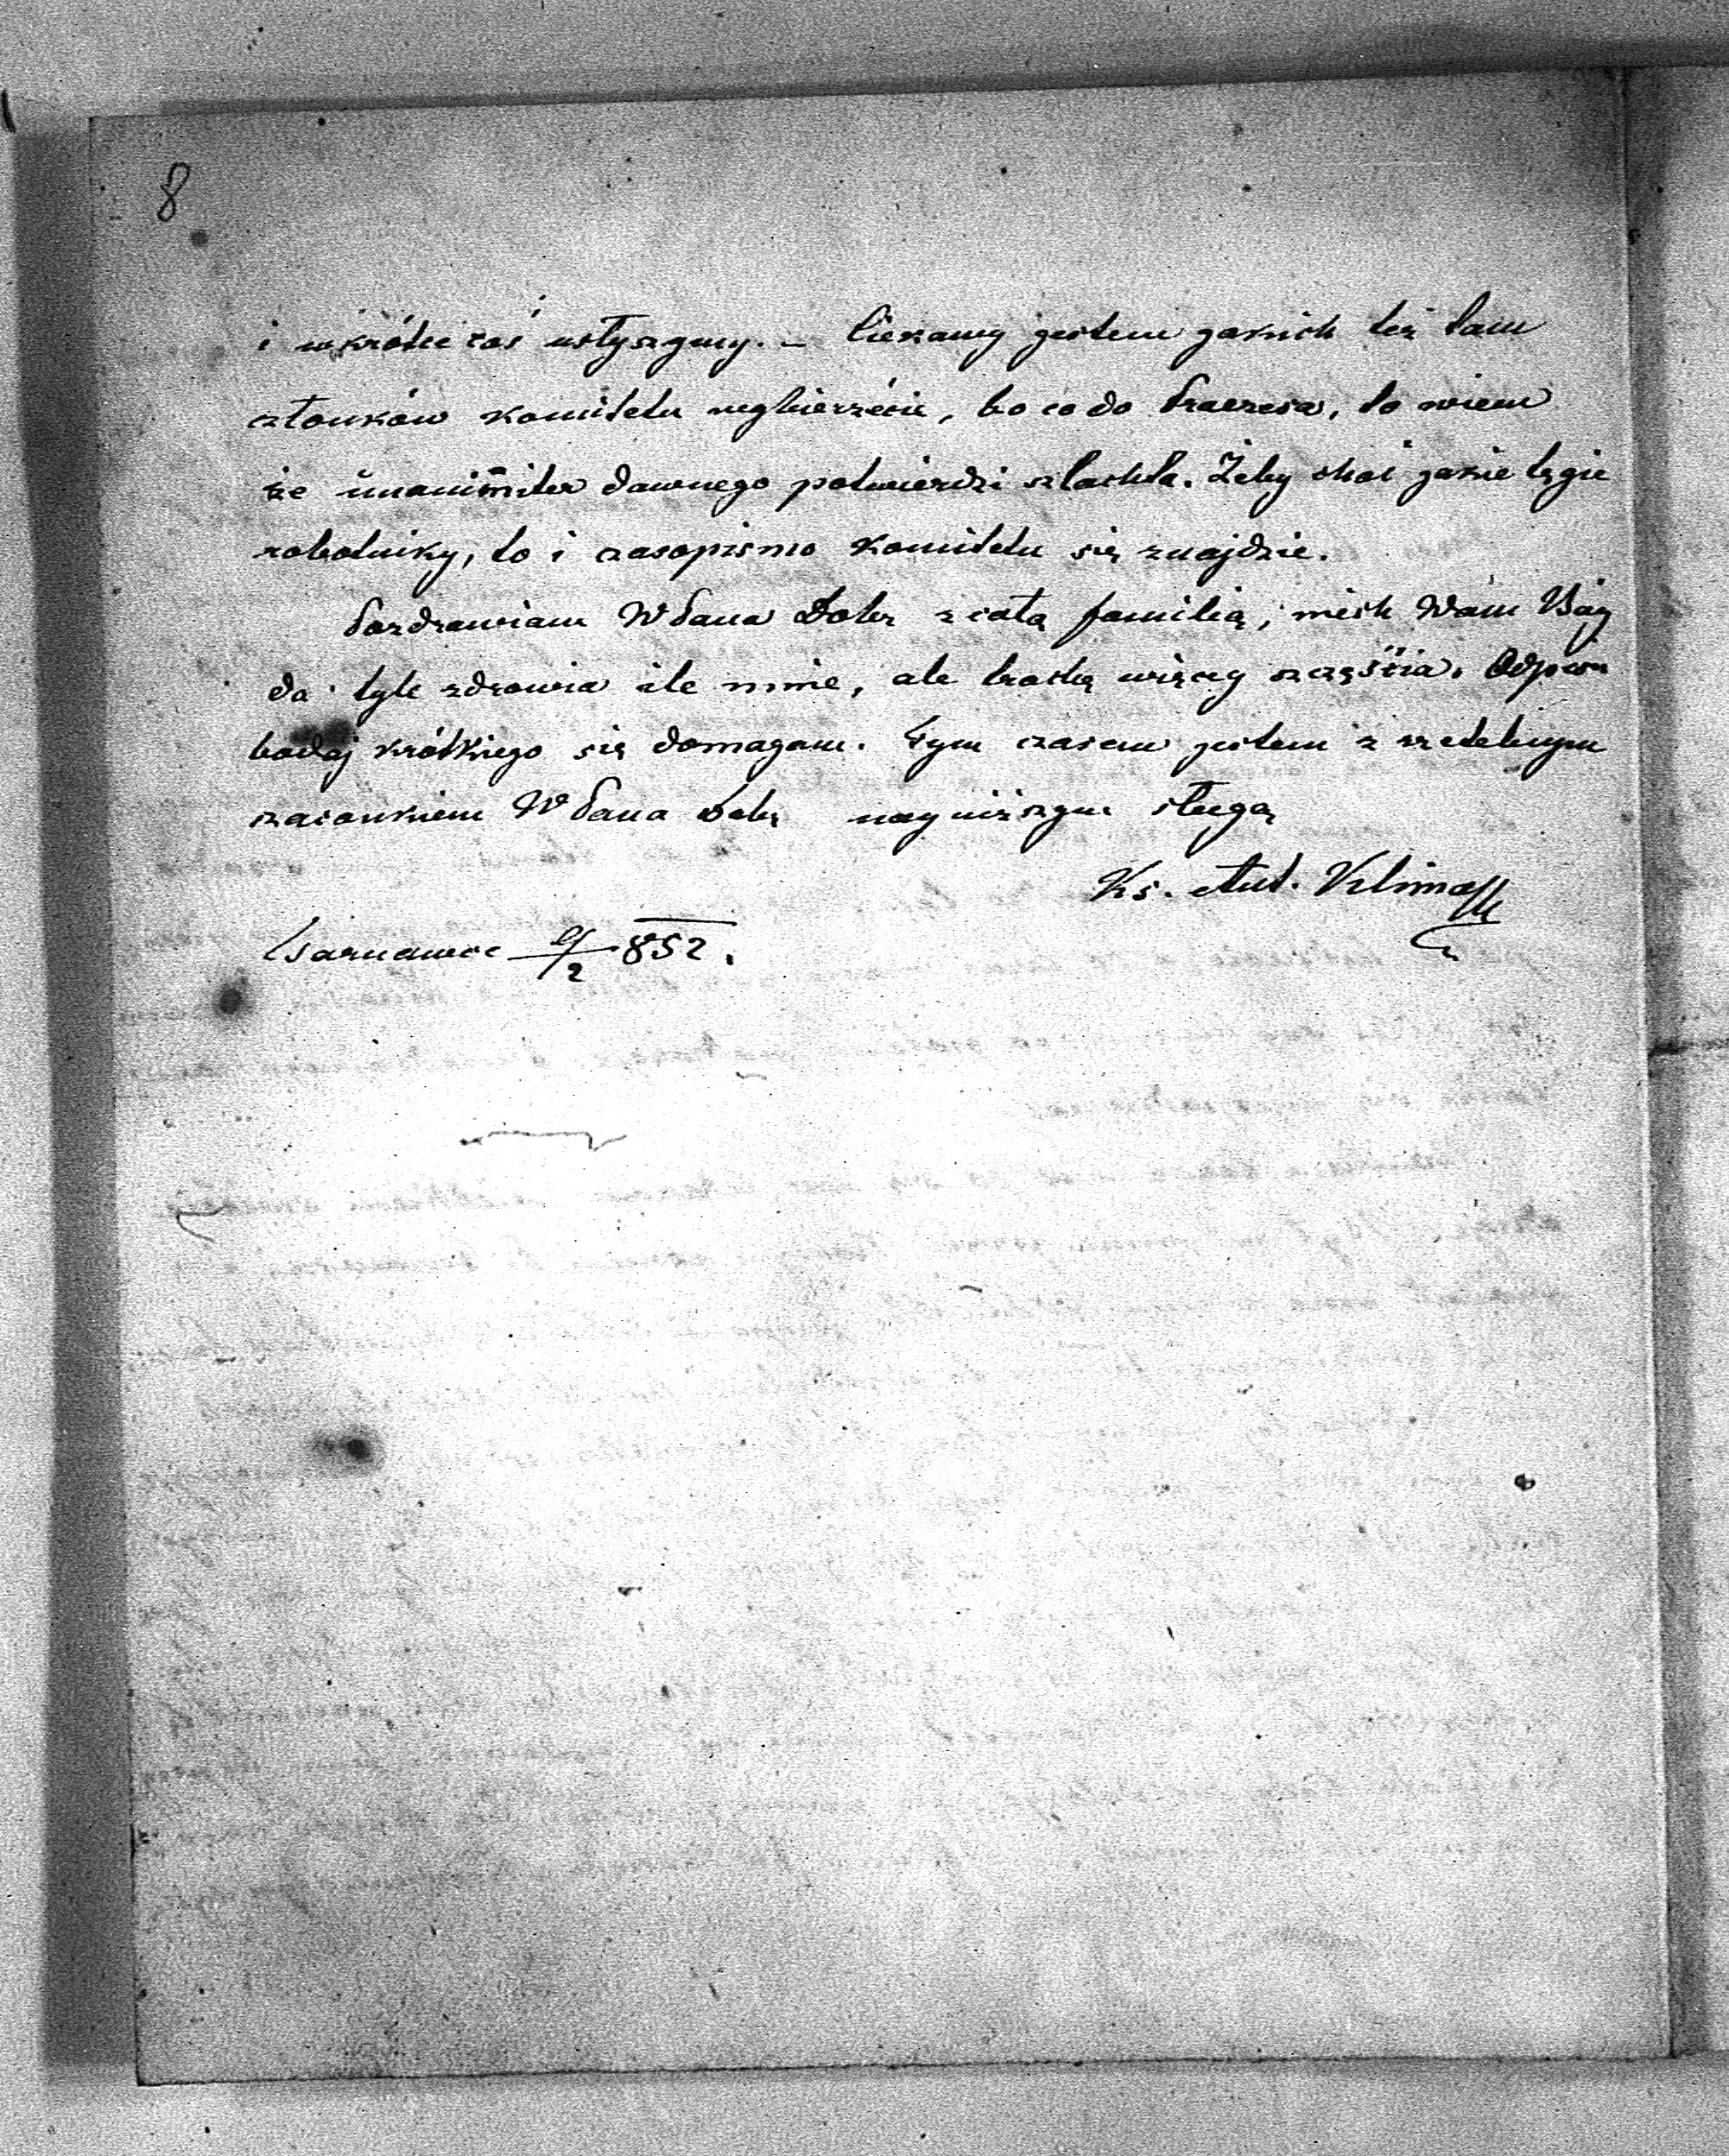 8
i wkrótce coś usłyszymy. – Ciekawy jestem jakich też tam
członków komitetu wybierzecie, bo co do Praezesa, to wiem
że unanimiter dawnego potwierdzi szlachta. Żeby choć jakie tęgie
robotniky, to i czasopismo komitetu się znajdzie.
Pozdrawiam WPana Dobr z całą familią, niech Wam Bóg
da tyle zdrowia ile mnie, ale trochę więcey szczęścia. Odpisu
bodaj krótkiego się domagam. Tym czasem jestem z rzetelnym
szacunkiem WPana Dobr nayniższym sługą
Ks. Ant. Klima
9/2 852.